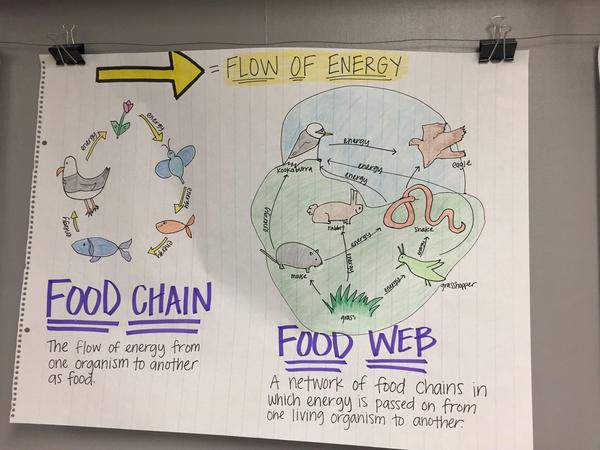 = FLOW OF ENERGY
energy
energy
energy
energy
energy
FOOD CHAIN
The flow of energy from
one organism to another
as food.
energy
kookaburra
eagle
energy
energy
energy
rabbit
snake
energy
energy
mouse
energy
energy
grasshopper
grass
FOOD WEB
A network of food chains in
which energy is passed on from
one living organism to another.